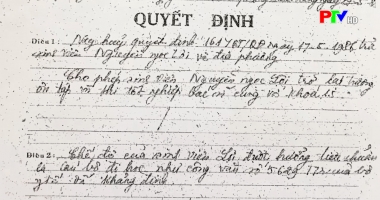 PTV HD
QUYẾT ĐỊNH
Điều 1: Nay huỷ quyết định 161 YBT/QĐ ngày 17.5.1986 trả
sinh viên Nguyễn Ngọc Lợi về địa phương
Cho phép sinh viên Nguyễn Ngọc Lợi trở lại trường
ôn tập và thi tốt nghiệp bác sĩ cùng với khoá 15.
Điều 2: Chế độ của sinh viên Lợi được hưởng tiêu chuẩn
là cán bộ đi học như công văn số 5689 của bộ
y tế đã khẳng định